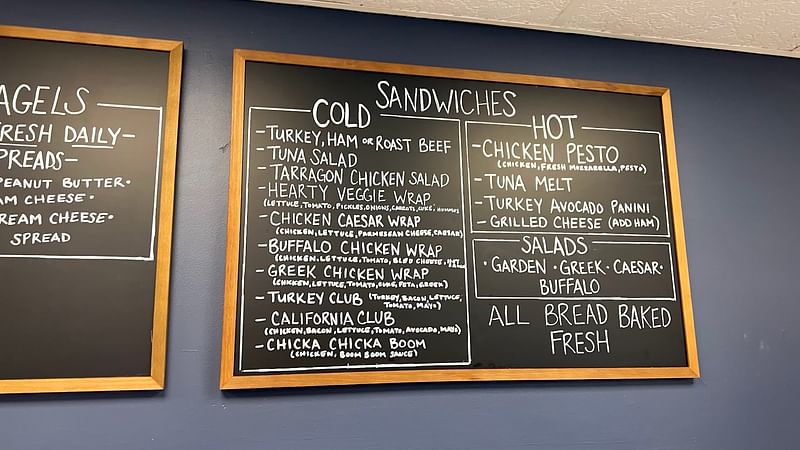 AGELS
FRESH DAILY-
PREADS-
PEANUT BUTTER·
AM CHEESE·
REAM CHEESE·
SPREAD
SANDWICHES
COLD
-TURKEY, HAM OR ROAST BEEF
-TUNA SALAD
-TARRAGON CHICKEN SALAD
-HEARTY VEGGIE WRAP
(LETTUCE, TOMATO, PICKLES, ONIONS, CARROTS, CUKE, HUMMUS
-CHICKEN CAESAR WRAP
(CHICKEN, LETTUCE, PARMESEAN CHEESE, CAESAR)
-BUFFALO CHICKEN WRAP
(CHICKEN, LETTUCE, TOMATO, BLEU CHEESE,
-GREEK CHICKEN WRAP
(CHICKEN, LETTUCE, TOMATO, CUKE, FETA, GREEK)
-TURKEY CLUB (TURKEY, BACON, LETTUCE,
TOMATO, MAYO)
-CALIFORNIA CLUB
(CHICKEN, BACON, LETTUCE, TOMATO, AVOCADO, MAYO)
-CHICKA CHICKA BOOM
(CHICKEN, BOOM BOOM SAUCE)
HOT
-CHICKEN PESTO
(CHICKEN, FRESH MOZZARELLA, PESTO)
-TUNA MELT
-TURKEY AVOCADO PANINI
-GRILLED CHEESE (ADD HAM)
SALADS
·GARDEN ·GREEK· CAESAR·
BUFFALO
ALL BREAD BAKED
FRESH